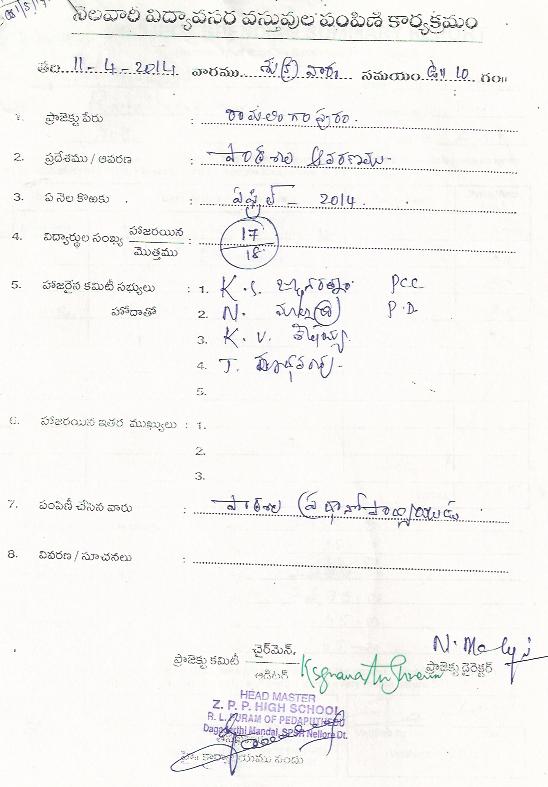 నెలవారీ విద్యావసర వస్తువుల పంపిణీ కార్యక్రమం
తేది 11-4-2014 వారము శుక్రవారం సమయం ఉ॥ 10 గం॥
1. ప్రాజెక్టు పేరు : రామలింగాపురం.
2. ప్రదేశము / ఆవరణ : పాఠశాల ఆవరణము-
3. ఏ నెల కొఱకు : ఏప్రిల్ - 2014.
4. విద్యార్థుల సంఖ్య హాజరయిన : 17
మొత్తము 18
5. హాజరైన కమిటీ సభ్యులు : 1. K.S. PCC
హోదాతో 2. N. P.D
3. K.V.
4. T.
5.
6. హాజరయిన ఇతర ముఖ్యులు : 1.
2.
3.
7. పంపిణీ చేసిన వారు : పాఠశాల ప్రధానోపాధ్యాయుడు
8. వివరణ / సూచనలు :
ప్రాజెక్టు కమిటీ ఛైర్‌మెన్.
ఆడిటర్ ప్రాజెక్టు డైరెక్టర్
HEAD MASTER
Z. P. P. HIGH SCHOOL
R. L. PURAM OF PEDAPUTHEDU
Dagadarthi Mandal, SPSR Nellore Dt.